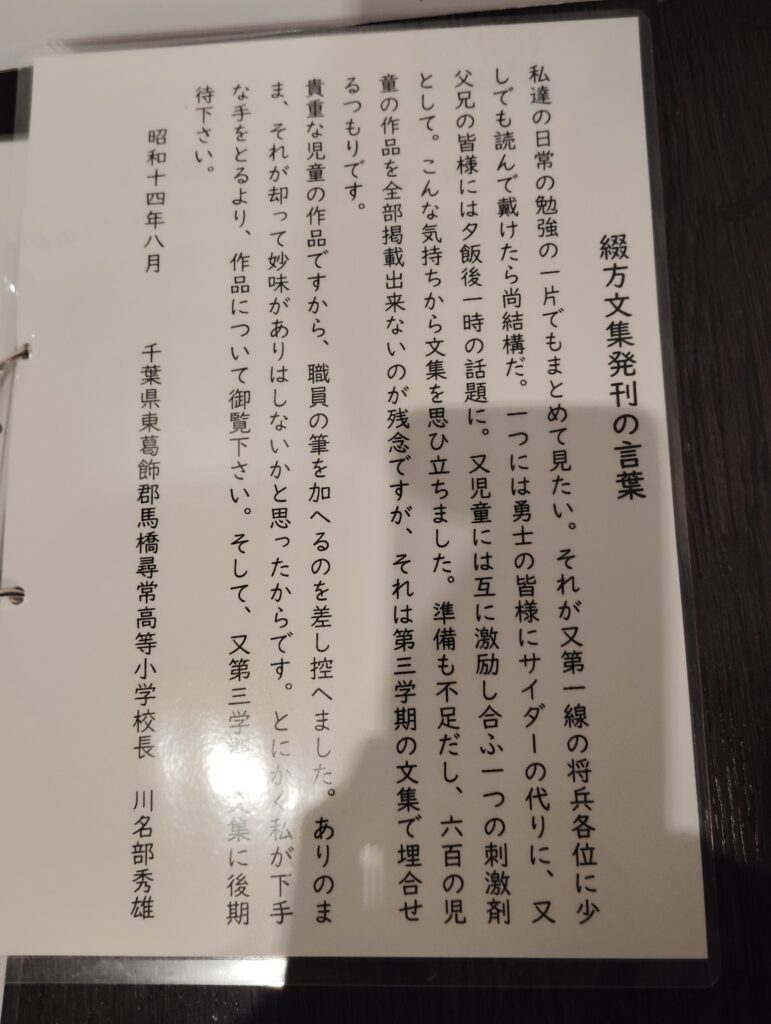 綴方文集発刊の言葉
私達の日常の勉強の一片でもまとめて見たい。それが又第一線の将兵各位に少
しでも読んで戴けたら尚結構だ。一つには勇士の皆様にサイダーの代りに、又
父兄の皆様には夕飯後一時の話題に。又児童には互に激励し合ふ一つの刺激剤
として。こんな気持ちから文集を思ひ立ちました。準備も不足だし、六百の児
童の作品を全部掲載出来ないのが残念ですが、それは第三学期の文集で埋合せ
るつもりです。
貴重な児童の作品ですから、職員の筆を加へるのを差し控へました。ありのま
ま、それが却って妙味がありはしないかと思ったからです。とにかく私が下手
な手をとるより、作品について御覧下さい。そして、又第三学 文集に後期
待下さい。
昭和十四年八月 千葉県東葛飾郡馬橋尋常高等小学校長 川名部秀雄